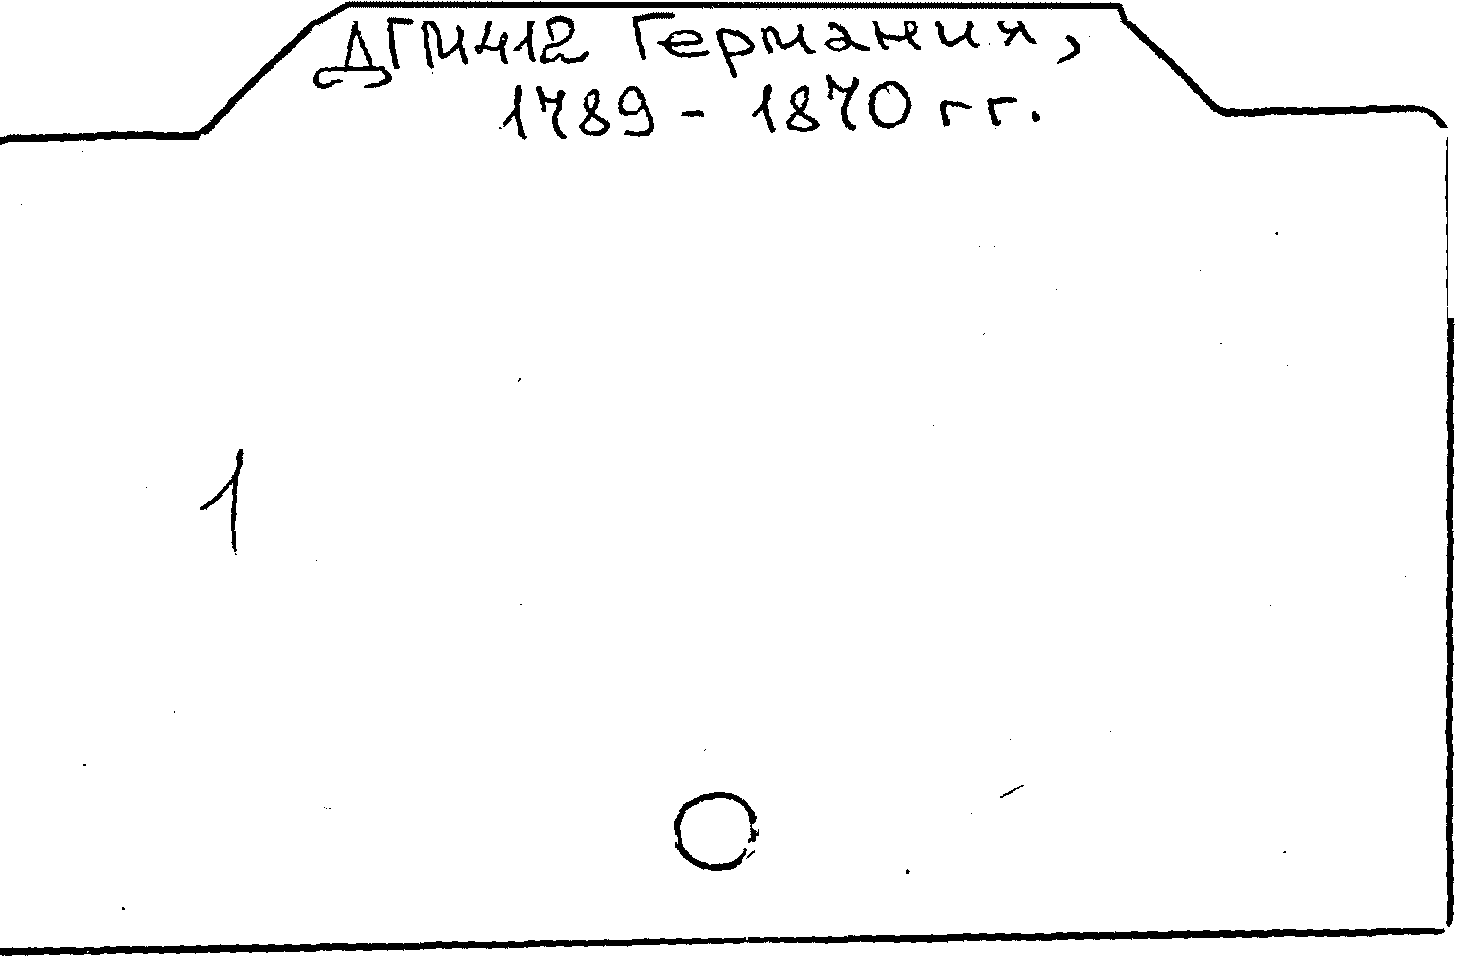 ДГМ412 Германия,
1789 - 1870 гг.
1